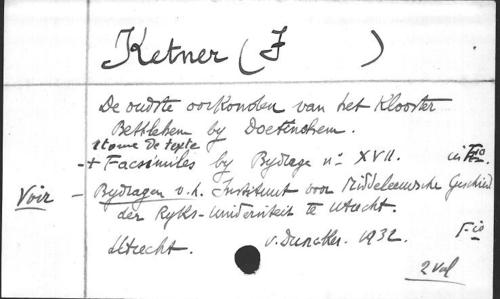 Ketner (F )
De oudste oorkonden van het Klooster
Bethlehem by Doetinchem.
tome De texte
+ Facsimiles by Bydrage n° XVII. in F-io
Voir - Bydragen v. h. Instituut voor Middeleeuwsche Geschied
der Ryks-Universiteit te Utrecht.
Utrecht. 1932 F-io
2 vol